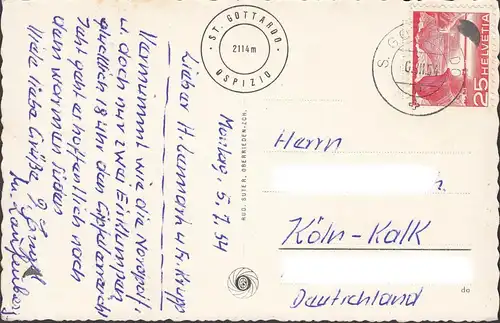 ST. GOTTARDO
2114m
OSPIZIO
HELVETIA
25
S. G
Montag, 5.7.54
Lieber H. Lennartz u Fr. Krupp
Vermummt wie die Nordpol,
u. doch nur zwei Eisklumpen
glücklich 18 Uhr den Gipfel erreicht
Jetzt geht es hoffentlich nach
dem warmen Süden
Viele liebe Grüße
RUD. SUTER, OBERRIEDEN-ZCH.
Herrn
Köln-Kalk
Deutschland
do